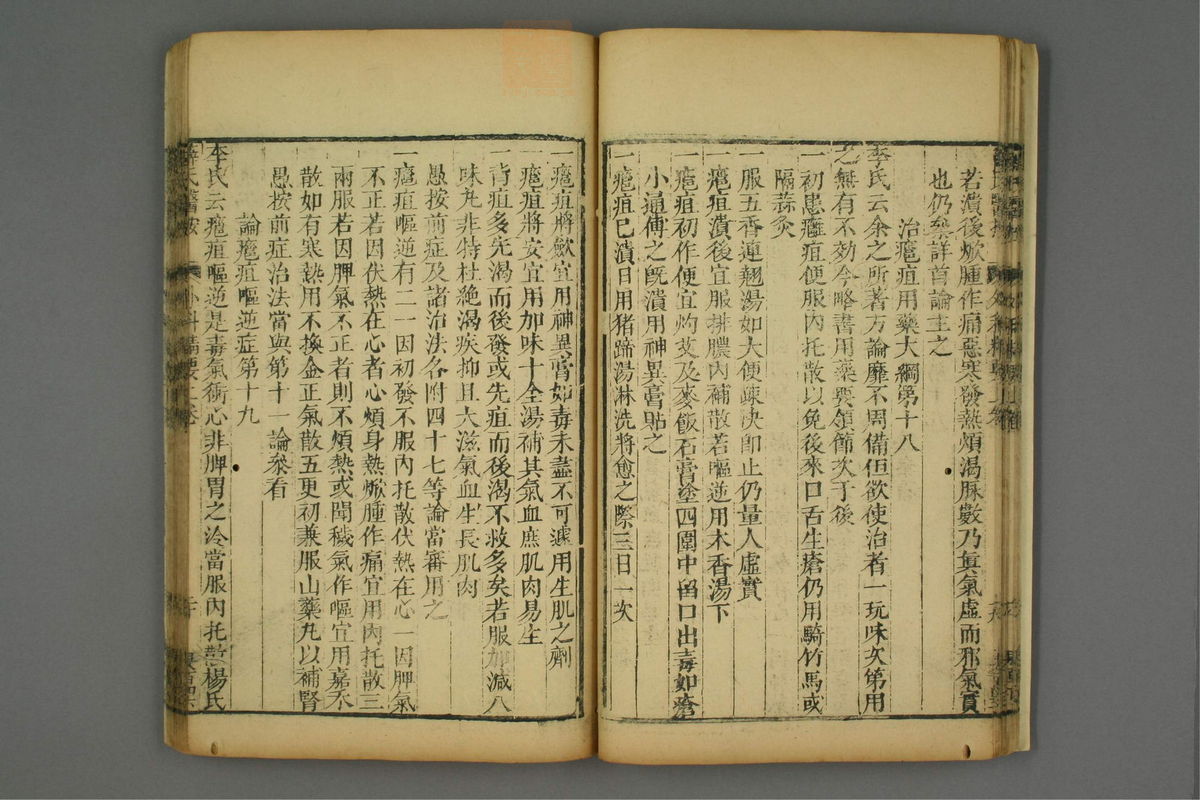 若潰後焮腫作痛惡寒發熱煩渴脉數乃眞氣虛而邪氣實
也仍叅詳首論主之
治癰疽用藥大綱第十八
李氏云余之所著方論靡不周備但欲使治者一玩味次第用
之無有不効今略書用藥要領節次于後
一初患癰疽便服內托散以免後來口舌生瘡仍用騎竹馬或
隔蒜灸
一服五香連翹湯如大便疎決卽止仍量人虛實
一癰疽潰後宜服排膿內補散若嘔逆用木香湯下
一癰疽初作便宜灼艾及麥飯石膏塗四圍中留口出毒如瘡
小通傅之旣潰用神異膏貼之
一癰疽已潰日用猪蹄湯淋洗將愈之際三日一次
一癰疽將斂宜用神異膏如毒未盡不可遽用生肌之劑
一癰疽將安宜用加味十全湯補其氣血庶肌肉易生
一背疽多先渴而後發或先疽而後渴不救多矣若服加減八
味丸非特杜絶渴疾抑且大滋氣血生長肌肉
愚按前症及諸治法各附四十七等論當審用之
一癰疽嘔逆有二一因初發不服內托散伏熱在心一因脾氣
不正若因伏熱在心者心煩身熱焮腫作痛宜用內托散三
兩服若因脾氣不正者則不煩熱或聞穢氣作嘔宜用嘉禾
散如有寒熱用不換金正氣散五更初兼服山藥丸以補腎
愚按前症治法當與第十一論叅看
論癰疽嘔逆症第十九
李氏云癰疽嘔逆是毒氣衝心非脾胃之冷當服內托散楊氏
薛氏醫按 外科精要上卷